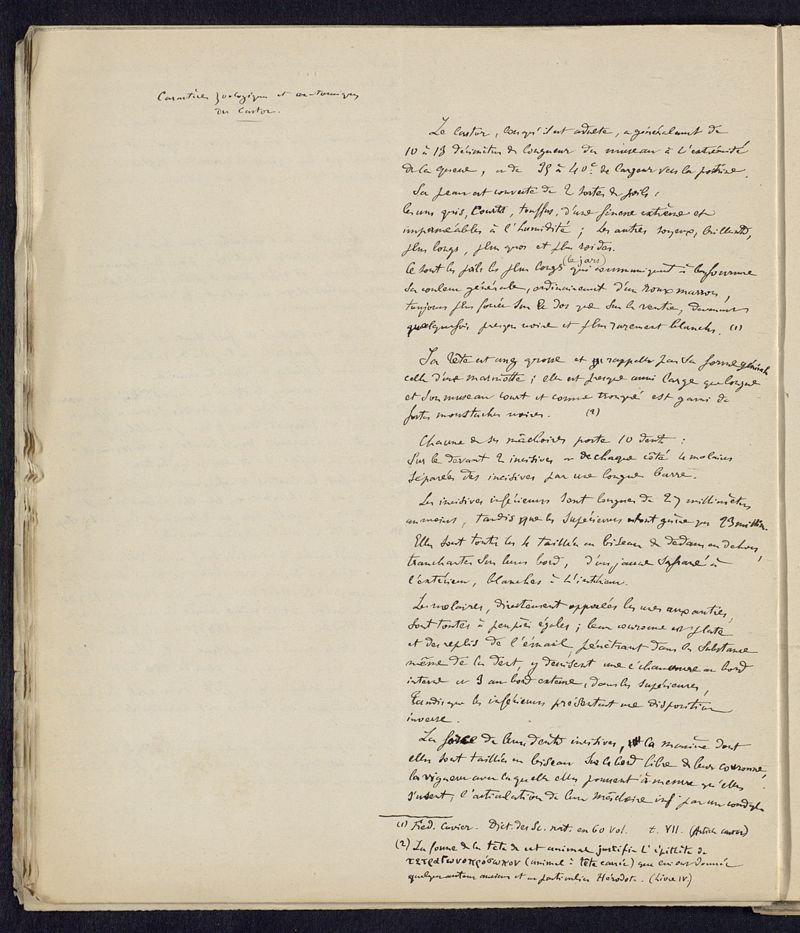 Caractères zoologiques et anatomiques
du Castor.
Le Castor, lorsqu'il est adulte, a généralement de
10 à 13 décimètres de longueur du museau à l'extrémité
de la queue, et de 35 à 40 c. de largeur vers la poitrine.
Sa peau est couverte de 2 sortes de poils :
les uns gris, courts, touffus, d'une finesse extrême et
imperméables à l'humidité ; les autres soyeux, brillants,
plus longs, plus gros et plus roides.
Ce sont les poils les plus longs (le jars) qui communiquent à la fourrure
sa couleur générale, ordinairement d'un roux marron,
toujours plus foncée sur le dos que sur le ventre, devenant
quelquefois presque noire et plus rarement blanche. (1)
Sa tête est assez grosse et rappelle par sa forme générale
celle d'une marmotte ; elle est presque aussi large que longue
et son museau court et comme tronqué est garni de
fortes moustaches noires. (2)
Chacune de ses mâchoires porte 10 dents :
Sur le devant 2 incisives et de chaque côté 4 molaires
séparées des incisives par une longue barre.
Les incisives inférieures sont longues de 27 millimètres
au moins, tandis que les supérieures n'ont guère que 23 millim.
Elles sont toutes les 4 taillées en biseau de dedans en dehors,
tranchantes sur leurs bord, d'un jaune safrané à
l'extérieur, blanches à l'intérieur.
Les molaires, directement opposées les unes aux autres,
sont toutes à peu près égales ; leur couronne est plate
et des replis de l'émail, pénétrant dans la substance
même de la dent, y dessinent une échancrure au bord
interne et 3 au bord externe, dans les supérieures,
tandis que les inférieures présentent une disposition
inverse.
La force de leurs dents incisives, la manière dont
elles sont taillées en biseau sur le bord libre de leur couronne,
la vigueur avec laquelle elles poussent à mesure qu'elles
s'usent, l'articulation de leur mâchoire inf. par un condyle
(1) Fréd. Cuvier. Dict. des Sc. nat. en 60 vol. t. VII. (Article castor)
(2) La forme de la tête de cet animal justifie l'épithète de
τετραγωνοπρόσωπον (animal à tête carrée) que lui ont donnée
quelques auteurs anciens et en particulier Hérodote. (Livre IV.)